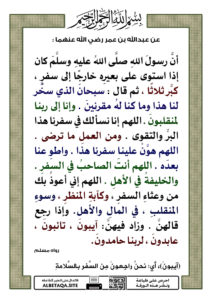 بِسْمِ اللَّهِ الرَّحْمَنِ الرَّحِيمِ
عن عبدالله بن عمر رضي الله عنهما :
أنَّ رسولَ اللهِ صلَّى اللهُ عليهِ وسلَّمَ كان
إذا استوى على بعيرِهِ خارجًا إلى سفرٍ ،
كبَّر ثلاثًا ، ثم قال : سبحانَ الذي سخَّر
لنا هذا وما كنا لهُ مقرنينَ . وإنا إلى ربِنا
لمنقلبونَ . اللهم إنا نسألكَ في سفرِنا هذا
البرَّ والتقوى . ومن العملِ ما ترضى .
اللهم هوِّنْ علينا سفرَنا هذا . واطوِ عنا
بعدَه . اللهم أنتَ الصاحبُ في السفرِ .
والخليفةُ في الأهلِ . اللهم إني أعوذُ بكَ
من وعثاءِ السفرِ ، وكآبةِ المنظرِ ، وسوءِ
المنقلبِ ، في المالِ والأهلِ . وإذا رجع
قالهنَّ . وزاد فيهنَّ: آيبونَ ، تائبونَ ،
عابدونَ ، لربِنا حامدونَ .
رواه مسلم
(آيبون)، أي: نحنُ راجعونَ مِن السَّفَرِ بالسَّلامةِ
ALBETAQA.SITE